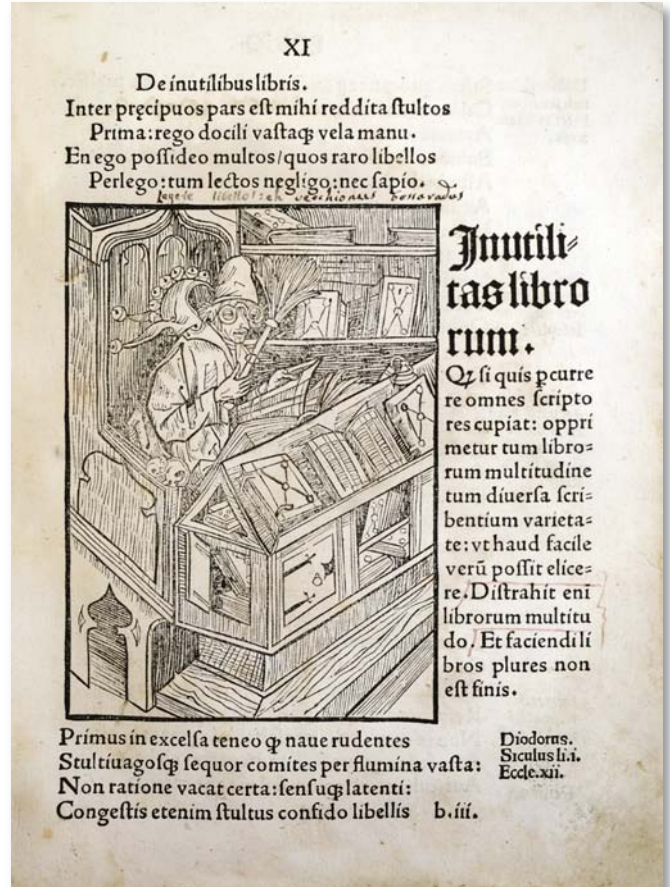 XI
De inutilibus libris.
Inter pręcipuos pars eſt mihi reddita ſtultos
Prima: rego docili vaſtaqꝫ vela manu.
En ego poſſideo multos/quos raro libellos
Perlego: tum lectos negligo: nec ſapio.
Inutili⸗
tas libro
rum.
Qꝫ ſi quis ꝑcurre
re omnes ſcripto
res cupiat: oppri
metur tum libro⸗
rum multitudine
tum diuerſa ſcri⸗
bentium varieta⸗
te: vt haud facile
verū poſſit elice⸗
re. Diſtrahit eni
librorum multitu
do. Et faciendi li
bros plures non
eſt finis.
Primus in excelſa teneo ꝙ naue rudentes
Stultiuagoſqꝫ ſequor comites per flumina vaſta:
Non ratione vacat certa: ſenſuqꝫ latenti:
Congeſtis etenim ſtultus confido libellis b.iii.
Diodorus.
Siculus li.i.
Eccle.xii.